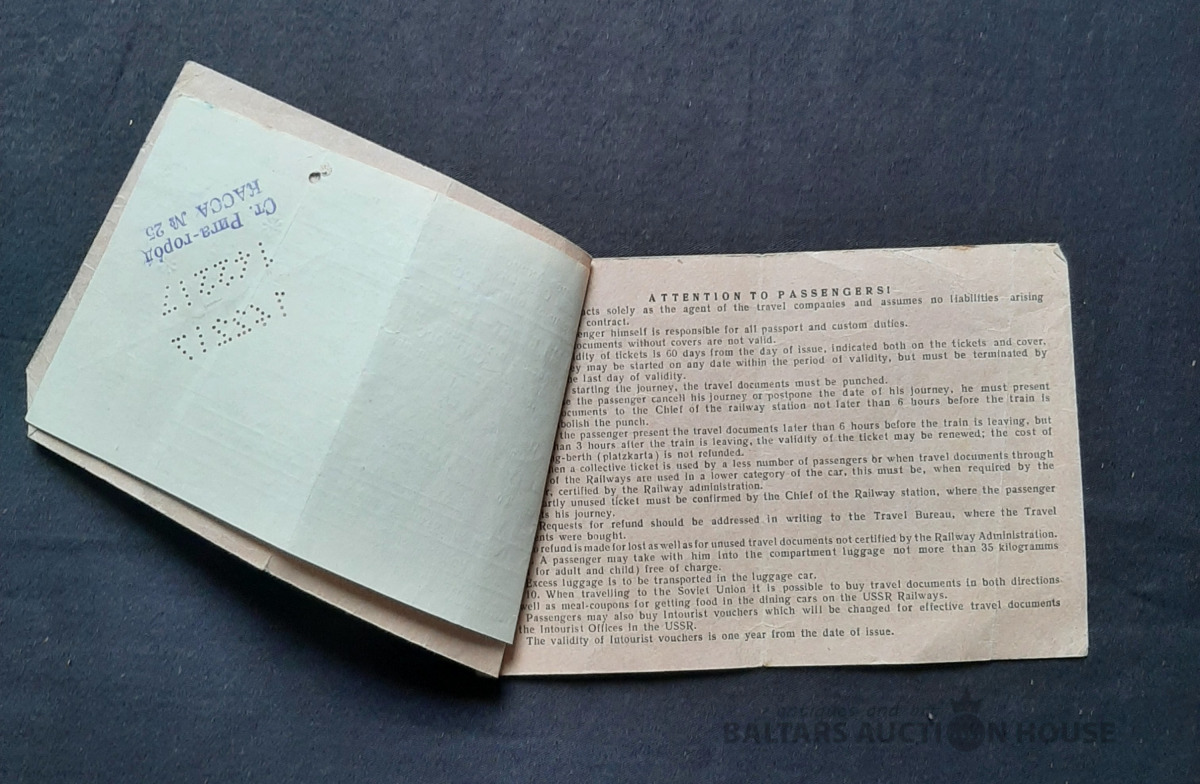 Ст. Рига-город
КАССА № 25
ATTENTION TO PASSENGERS!
acts solely as the agent of the travel companies and assumes no liabilities arising
contract.
enger himself is responsible for all passport and custom duties.
ocuments without covers are not valid.
dity of tickets is 60 days from the day of issue, indicated both on the tickets and cover.
ey may be started on any date within the period of validity, but must be terminated by
e last day of validity.
starting the journey, the travel documents must be punched.
e the passenger cancell his journey or postpone the date of his journey, he must present
ocuments to the Chief of the railway station not later than 6 hours before the train is
bolish the punch.
the passenger present the travel documents later than 6 hours before the train is leaving, but
an 3 hours after the train is leaving, the validity of the ticket may be renewed; the cost of
g-berth (platzkarta) is not refunded.
en a collective ticket is used by a less number of passengers or when travel documents through
of the Railways are used in a lower category of the car, this must be, when required by the
r, certified by the Railway administration.
artly unused ticket must be confirmed by the Chief of the Railway station, where the passenger
s his journey.
Requests for refund should be addressed in writing to the Travel Bureau, where the Travel
nts were bought.
refund is made for lost as well as for unused travel documents not certified by the Railway Administration.
A passenger may take with him into the compartment luggage not more than 35 kilogramms
for adult and child) free of charge.
Excess luggage is to be transported in the luggage car.
10. When travelling to the Soviet Union it is possible to buy travel documents in both directions
well as meal-coupons for getting food in the dining cars on the USSR Railways.
Passengers may also buy Intourist vouchers which will be changed for effective travel documents
the Intourist Offices in the USSR.
The validity of Intourist vouchers is one year from the date of issue.
BALTARS AUCTION HOUSE